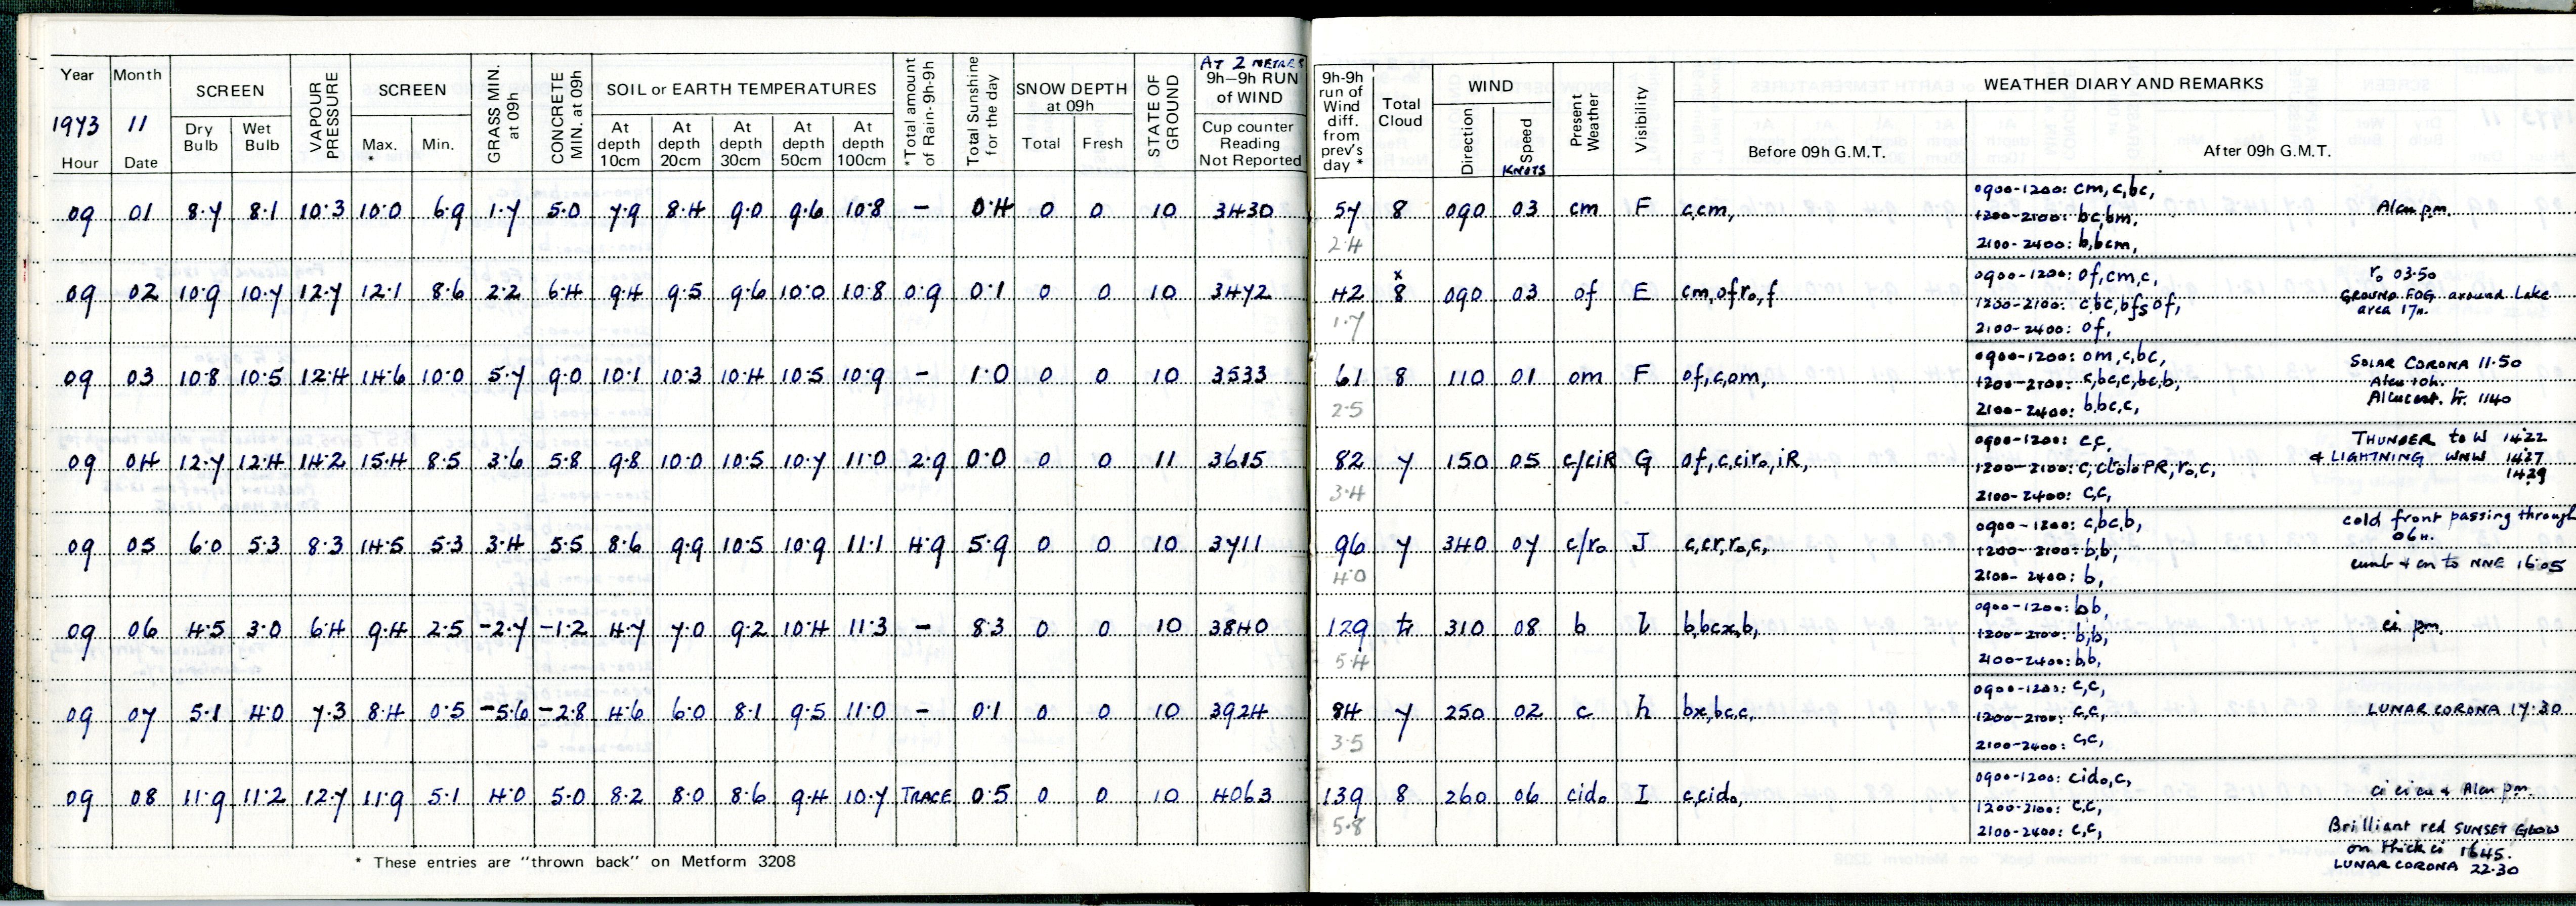 Year Month SCREEN VAPOUR PRESSURE SCREEN GRASS MIN. at 09h CONCRETE MIN. at 09h SOIL or EARTH TEMPERATURES *Total amount of Rain-9h-9h Total Sunshine for the day SNOW DEPTH at 09h STATE OF GROUND AT 2 METRES 9h–9h RUN of WIND
1973 11
Hour Date Dry Bulb Wet Bulb Max. * Min. At depth 10cm At depth 20cm At depth 30cm At depth 50cm At depth 100cm Total Fresh Cup counter Reading Not Reported
9h-9h run of Wind diff. from prev's day * Total Cloud WIND Direction Speed KNOTS Present Weather Visibility WEATHER DIARY AND REMARKS
Before 09h G.M.T. After 09h G.M.T.
09 01 8.7 8.1 10.3 10.0 6.9 1.7 5.0 7.9 8.4 9.0 9.6 10.8 – 0.4 0 0 10 3430
57 8 090 03 cm F c,cm, 0900-1200: cm,c,bc,
1200-2100: bc,bm, Alcu pm.
2.4 2100-2400: b,bcm,
09 02 10.9 10.7 12.7 12.1 8.6 2.2 6.4 9.4 9.5 9.6 10.0 10.8 0.9 0.1 0 0 10 3472
42 x 8 090 03 of E cm,ofr₀,f 0900-1200: of,cm,c, r₀ 03.50
1200-2100: c,bc,bfs of, GROUND FOG around Lake
area 17h.
1.7 2100-2400: of,
09 03 10.8 10.5 12.4 14.6 10.0 5.7 9.0 10.1 10.3 10.4 10.5 10.9 – 1.0 0 0 10 3533
61 8 110 01 om F of,c,om, 0900-1200: om,c,bc, SOLAR CORONA 11.50
1200-2100: c,bc,c,bc,b, Alcu 10h.
2.5 2100-2400: b,bc,c, Alcucast. tr. 1140
09 04 12.7 12.4 14.2 15.4 8.5 3.6 5.8 9.8 10.0 10.5 10.7 11.0 2.9 0.0 0 0 11 3615
82 7 150 05 c/ciR G of,c,cir₀,iR, 0900-1200: c,c, THUNDER to W 1422
1200-2100: c,ctl₀l₀PR,r₀,c, & LIGHTNING WNW 1427
1429
3.4 2100-2400: c,c,
09 05 6.0 5.3 8.3 14.5 5.3 3.4 5.5 8.6 9.9 10.5 10.9 11.1 4.9 5.9 0 0 10 3711
96 7 340 07 c/r₀ J c,cr,r₀,c, 0900-1200: c,bc,b, cold front passing through
06h.
1200-2100: b,b,
4.0 2100-2400: b, cumb & cn to NNE 16.05
09 06 4.5 3.0 6.4 9.4 2.5 -2.7 -1.2 4.7 7.0 9.2 10.4 11.3 – 8.3 0 0 10 3840
129 tr 310 08 b l b,bcx,b, 0900-1200: b,b,
1200-2100: b,b, ci pm.
5.4 2100-2400: b,b,
09 07 5.1 4.0 7.3 8.4 0.5 -5.6 -2.8 4.6 6.0 8.1 9.5 11.0 – 0.1 0 0 10 3924
84 7 250 02 c h bx,bc,c, 0900-1200: c,c,
1200-2100: c,c, LUNAR CORONA 17.30
3.5 2100-2400: c,c,
09 08 11.9 11.2 12.7 11.9 5.1 4.0 5.0 8.2 8.0 8.6 9.4 10.7 TRACE 0.5 0 0 10 4063
139 8 260 06 cid₀ I c,cid₀, 0900-1200: cid₀,c, ci cicu & Alcu pm.
1200-2100: c,c,
5.8 2100-2400: c,c, Brilliant red SUNSET GLOW
on thick ci 1645.
LUNAR CORONA 22.30
* These entries are "thrown back" on Metform 3208